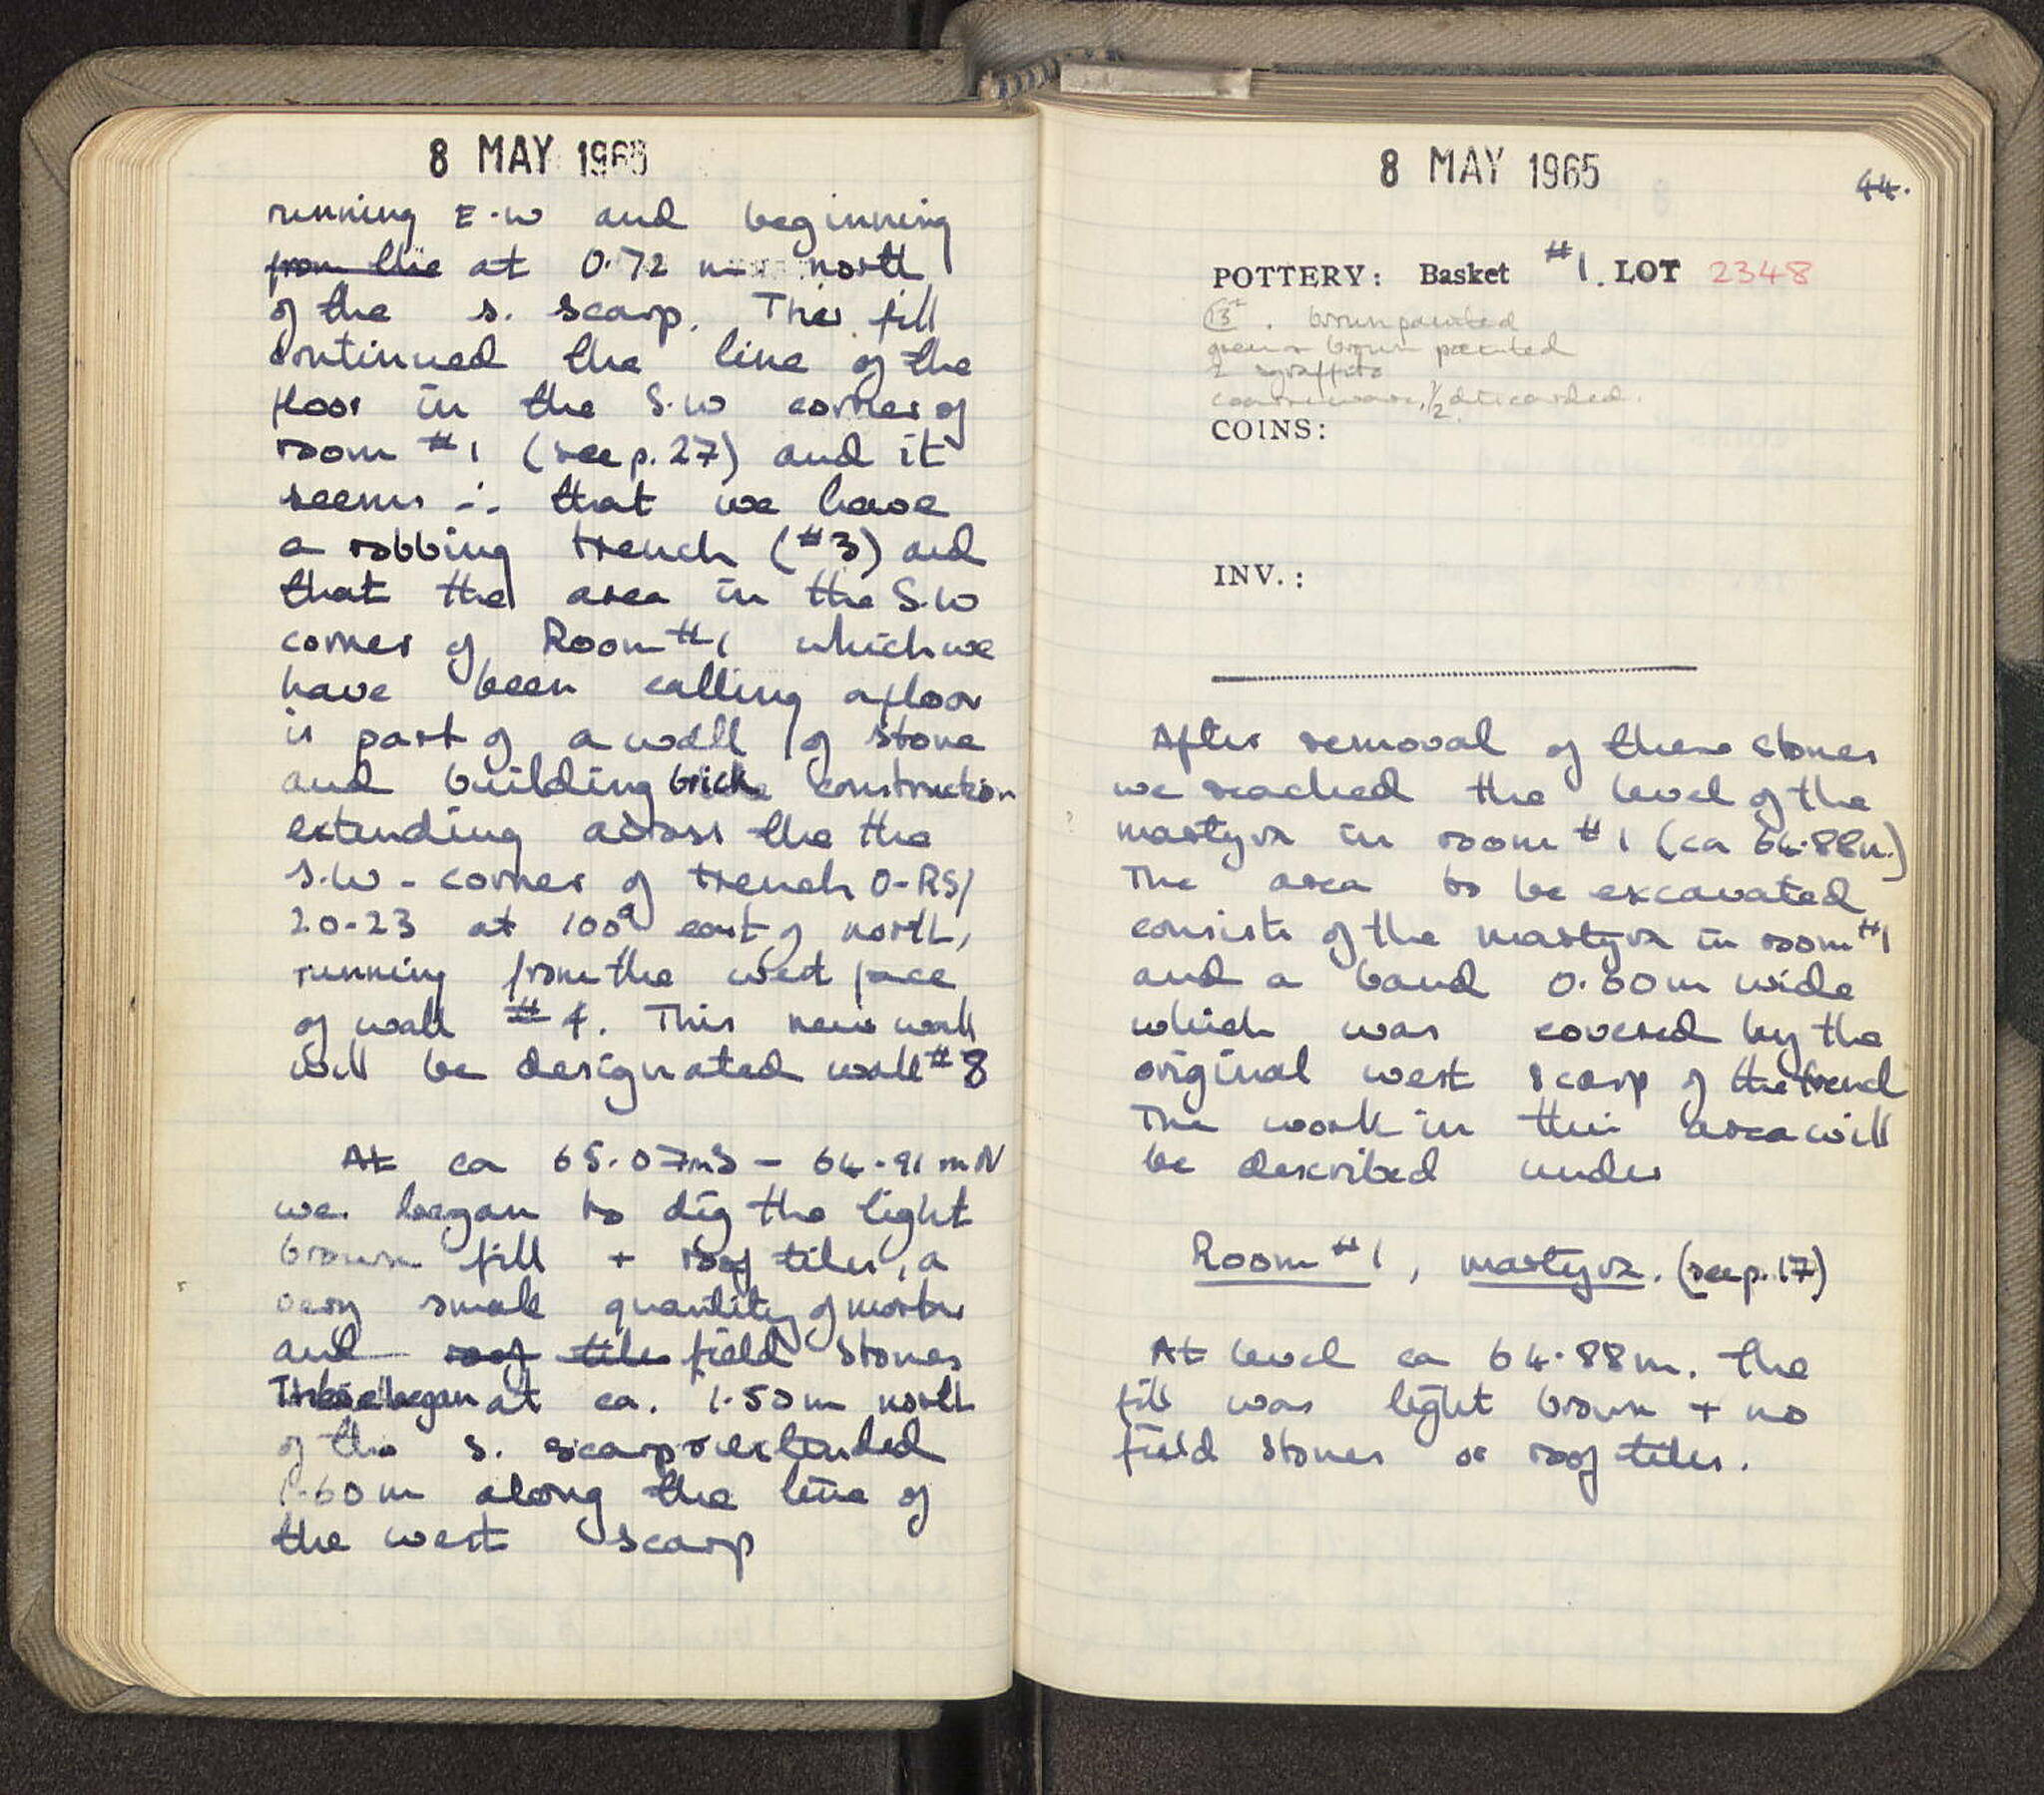 8 MAY 1965
running E-W and beginning
from the at 0.72 m north
of the s. scarp. This fill
continued the line of the
floor in the S.W corner of
room #1 (see p. 27) and it
seems ∴ that we have
a robbing trench (#3) and
that the area in the S.W
corner of Room #1 which we
have been calling a floor
is part of a wall of stone
and building brick construction
extending across the the
S.W - corner of trench O-RS/
20-23 at 100° east of north,
running from the west face
of wall #4. This new wall
will be designated wall #8
At ca 65.07mS - 64.91mN
we began to dig the light
brown fill + roof tiles, a
very small quantity of mortar
and roof tiles field stones
These began at ca. 1.50m north
of the s. scarp + extended
1.60m along the line of
the west scarp
8 MAY 1965
44.
POTTERY: Basket #1. LOT 2348
13th. brown painted
green + brown painted
2 sgraffito
coarseware, 1/2 discarded.
COINS:
INV.:
After removal of these stones
we reached the level of the
martyra in room #1 (ca 64.88m.)
The area to be excavated
consists of the martyra in room #1
and a band 0.60m wide
which was covered by the
original west scarp of the trench
The work in this area will
be described under
Room #1, martyra. (see p. 17)
At level ca 64.88m. the
fill was light brown + no
field stones or roof tiles.